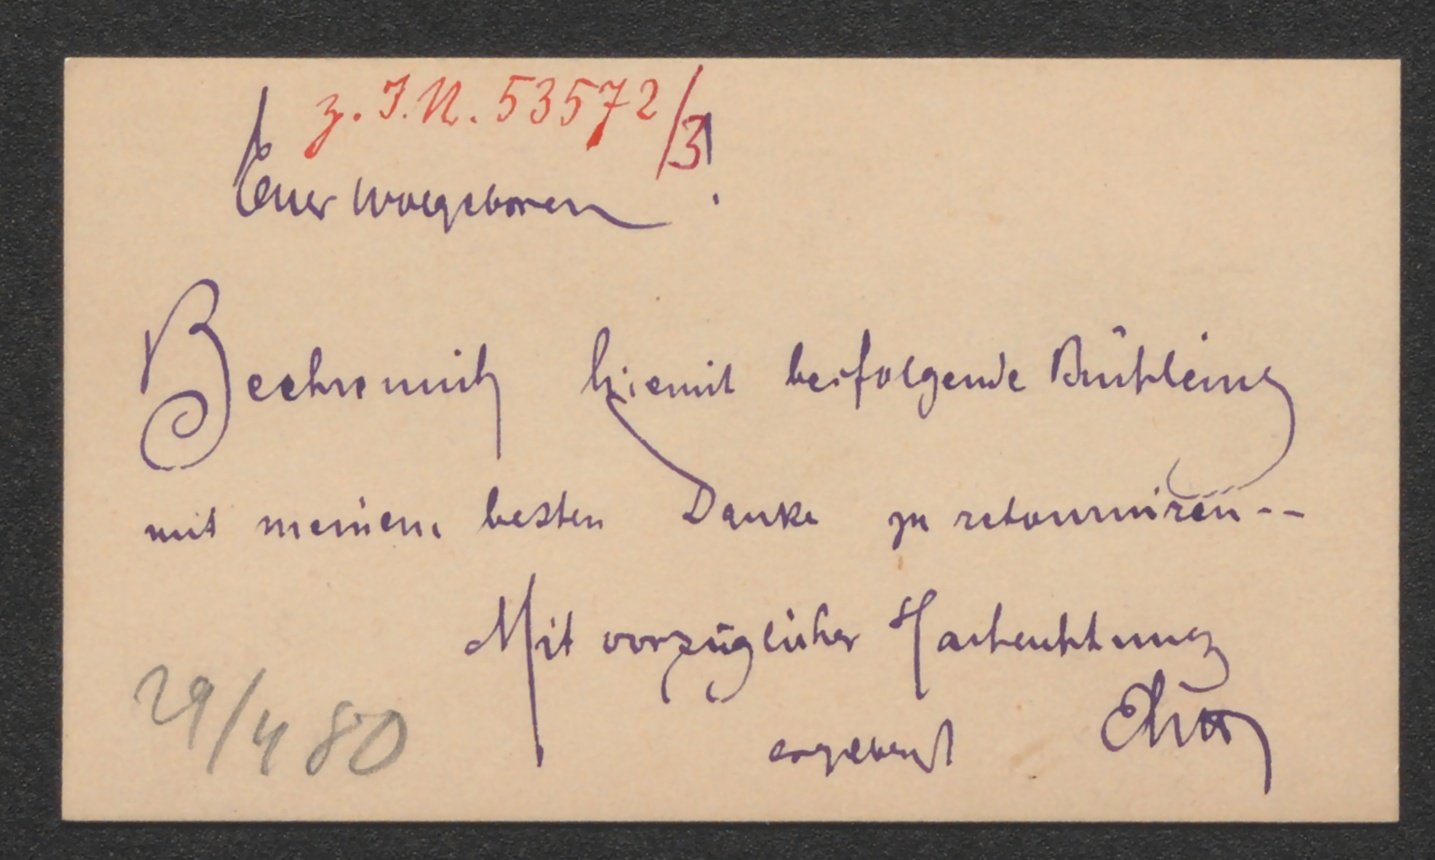 z. I.N. 53572/3
Euer Wolgeboren!
Beehre mich hiemit beifolgende Büchlein
mit meinem besten Danke zu retourniren --
Mit vorzüglicher Hochachtung
ergebenst
29/4 80